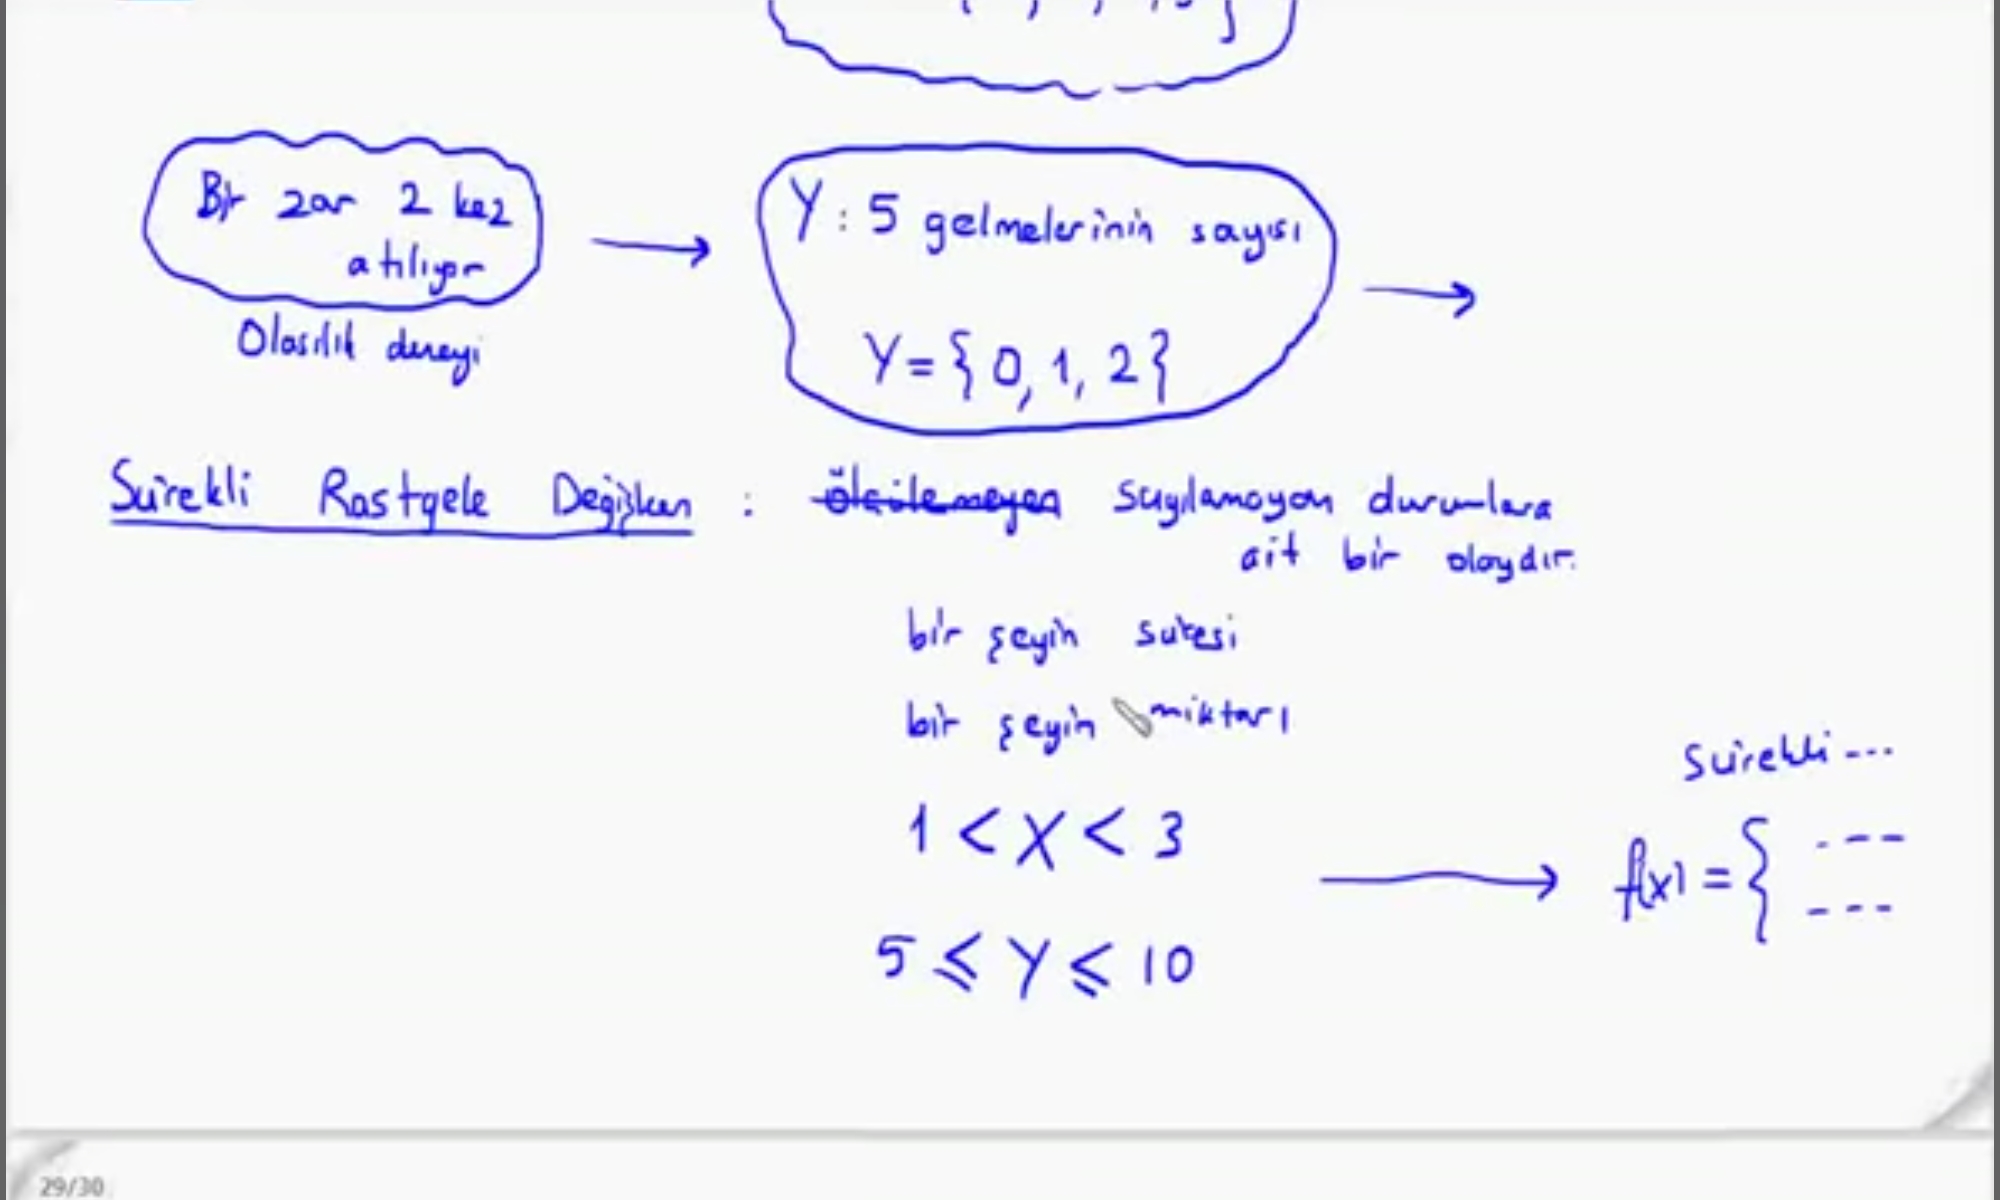 Bir zar 2 kez
atılıyor
Olasılık deneyi
Y : 5 gelmelerinin sayısı
Y = { 0, 1, 2 }
Sürekli Rastgele Değişken : ölçülemeyen sayılamayan durumlara
ait bir olaydır.
bir şeyin süresi
bir şeyin miktarı
1 < X < 3
5 ≤ Y ≤ 10
Sürekli ---
f(x) = { ---
---
29/30